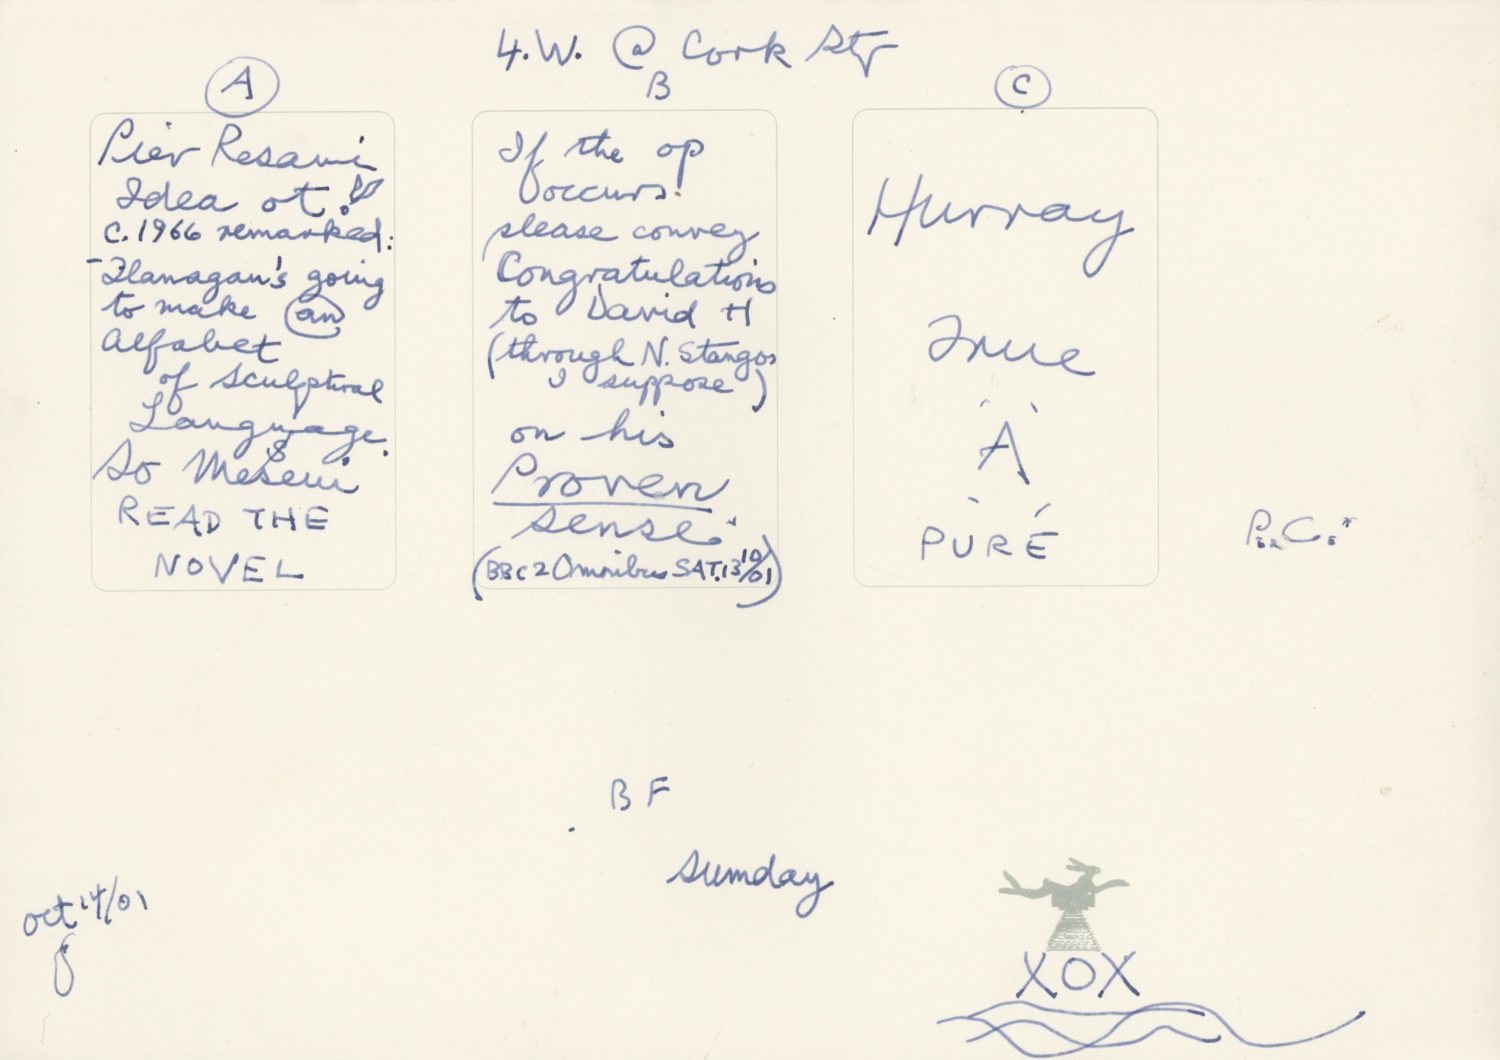 4.W. @ Cork Str
A
Pier Resami
Idea ot!
c.1966 remarked:
-Flanagan's going
to make an
Alfabet
of sculptural
Language.
So Meseui
READ THE
NOVEL
B
If the op
occurs!
please convey
Congratulations
to David H
(through N. Stangos
I suppose)
on his
Proven
sense.
(BBC2 Omnibus SAT.13/10/01)
C
Hurray
True
A
PURÉ
P.C.*
BF
Sumday
oct 14/01
XOX